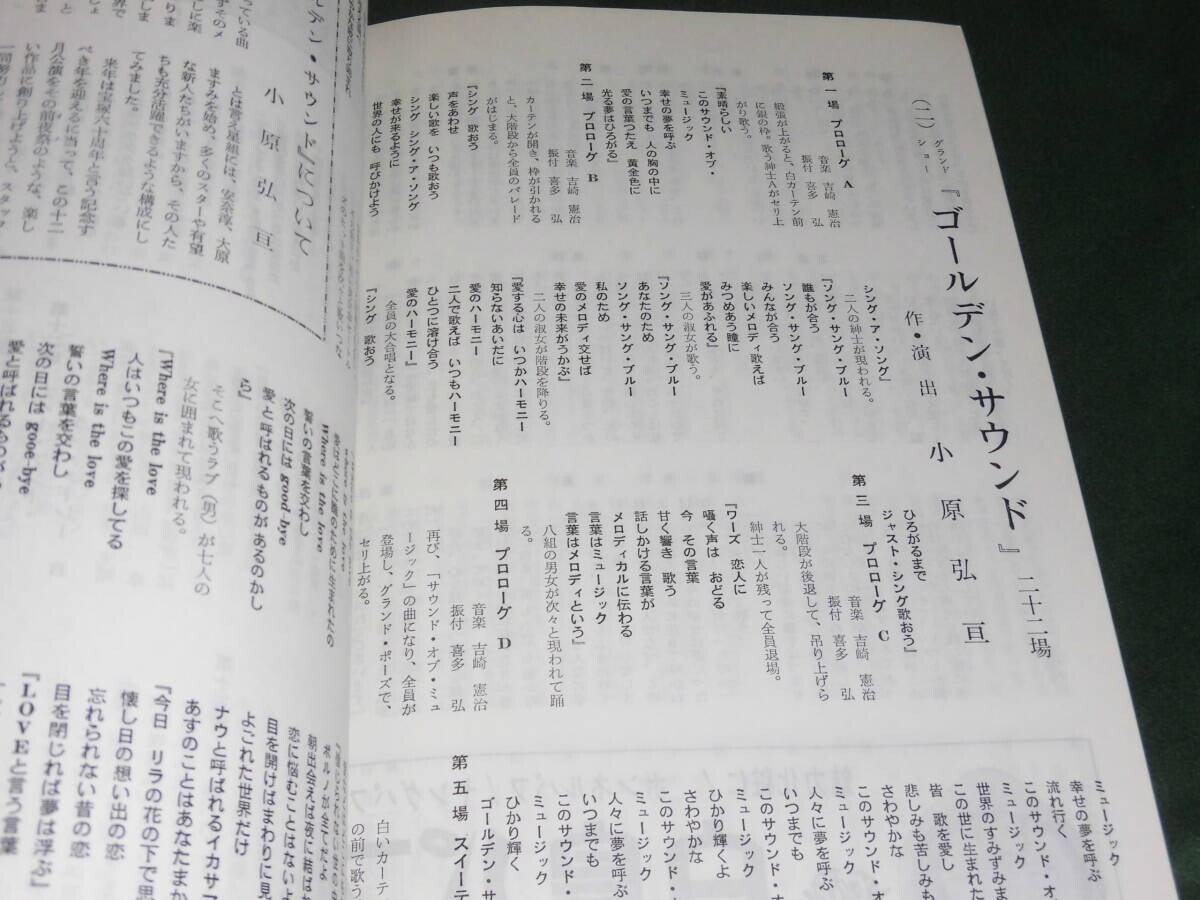 (二) グランド ショー 『ゴールデン・サウンド』 二十二場
作・演出 小原弘亘
第一場 プロローグ A
音楽 吉崎憲治
振付 喜多弘
緞張が上がると、白カーテン前
に銀の枠。歌う紳士Aがセリ上
がり歌う。
『素晴らしい
このサウンド・オブ・
ミュージック
幸せの夢を呼ぶ
いつまでも 人の胸の中に
愛の言葉つたえ 黄金色に
光る夢はひろがる』
第二場 プロローグ B
音楽 吉崎憲治
振付 喜多弘
カーテンが開き、枠が引かれる
と、大階段から全員のパレード
がはじまる。
『シング 歌おう
声をあわせ
楽しい歌を いつも歌おう
シング シング・ア・ソング
幸せが来るように
世界の人にも 呼びかけよう
シング・ア・ソング』
二人の紳士が現われる。
『ソング・サング・ブルー
誰もが合う
ソング・サング・ブルー
みんなが合う
楽しいメロディ歌えば
みつめあう瞳に
愛があふれる』
三人の淑女が歌う。
『ソング・サング・ブルー
あなたのため
ソング・サング・ブルー
私のため
愛のメロディ交せば
幸せの未来がうかぶ』
二人の淑女が階段を降りる。
『愛する心は いつかハーモニー
知らないあいだに
愛のハーモニー
二人で歌えば いつもハーモニー
ひとつに溶け合う
愛のハーモニー』
全員の大合唱となる。
『シング 歌おう
ひろがるまで
ジャスト・シング歌おう』
第三場 プロローグ C
音楽 吉崎憲治
振付 喜多弘
大階段が後退して、吊り上げら
れる。
紳士一人が残って全員退場。
『ワーズ 恋人に
囁く声は おどる
今 その言葉
甘く響き 歌う
話しかける言葉が
メロディカルに伝わる
言葉はミュージック
言葉はメロディという』
八組の男女が次々と現われて踊
る。
第四場 プロローグ D
音楽 吉崎憲治
振付 喜多弘
再び、「サウンド・オブ・ミュ
ージック」の曲になり、全員が
登場し、グランド・ポーズで、
セリ上がる。
ミュージック
幸せの夢を呼ぶ
流れ行く
このサウンド・オ
ミュージック
世界のすみずみま
この世に生まれた
皆 歌を愛し
悲しみも苦しみも
さわやかな
このサウンド・オ
ミュージック
人々に夢を呼ぶ
いつまでも
このサウンド・オ
ミュージック
ひかり輝くよ
さわやかな
このサウンド・オ
ミュージック
人々に夢を呼ぶ
いつまでも
このサウンド・
ミュージック
ひかり輝く
ゴールデン・サ
第五場 スイーテ
白いカーテ
の前で歌う
デン・サウンド』について
小原弘亘
とは言う星組には、安奈淳、大原
ますみを始め、多くのスターや有望
な新人たちがいますから、その人た
ちも充分活躍できるような構成にし
てみました。
来年は宝塚六十周年と言う記念す
べき年を迎えるに当って、この十二
月公演をその前夜祭のような、楽し
い作品に創り上げようと、スタッフ
Where is the love
誓いの言葉を交わし
次の日には good bye
愛と呼ばれるものが あるのかし
ら』
そこへ歌うラブ(男)が七人の
女に囲まれて現われる。
『Where is the love
人はいつもこの愛を探してる
Where is the love
誓いの言葉を交わし
次の日には gooe-bye
恋に悩むことはない
目を開けばまわりに見
よごれた世界だけ
ナウと呼ばれるイカサ
あすのことはあなたまか
『今日 リラの花の下で思
懐し日の想い出の恋
忘れられない昔の恋
目を閉じれば夢は浮ぶ』
『LOVEと言う言葉